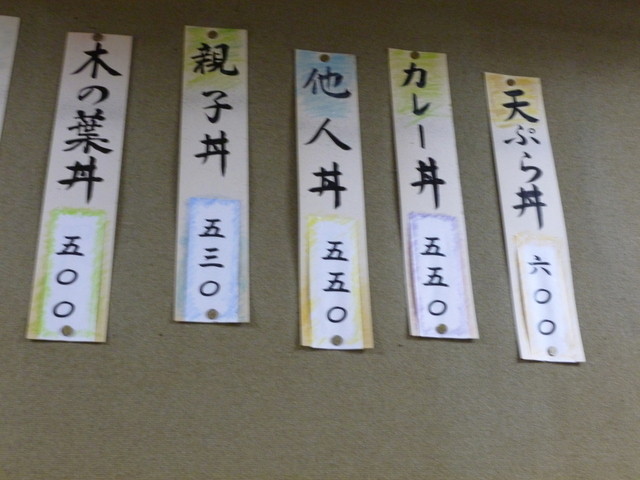 木の葉丼
五〇〇
親子丼
五三〇
他人丼
五五〇
カレー丼
五五〇
天ぷら丼
六〇〇